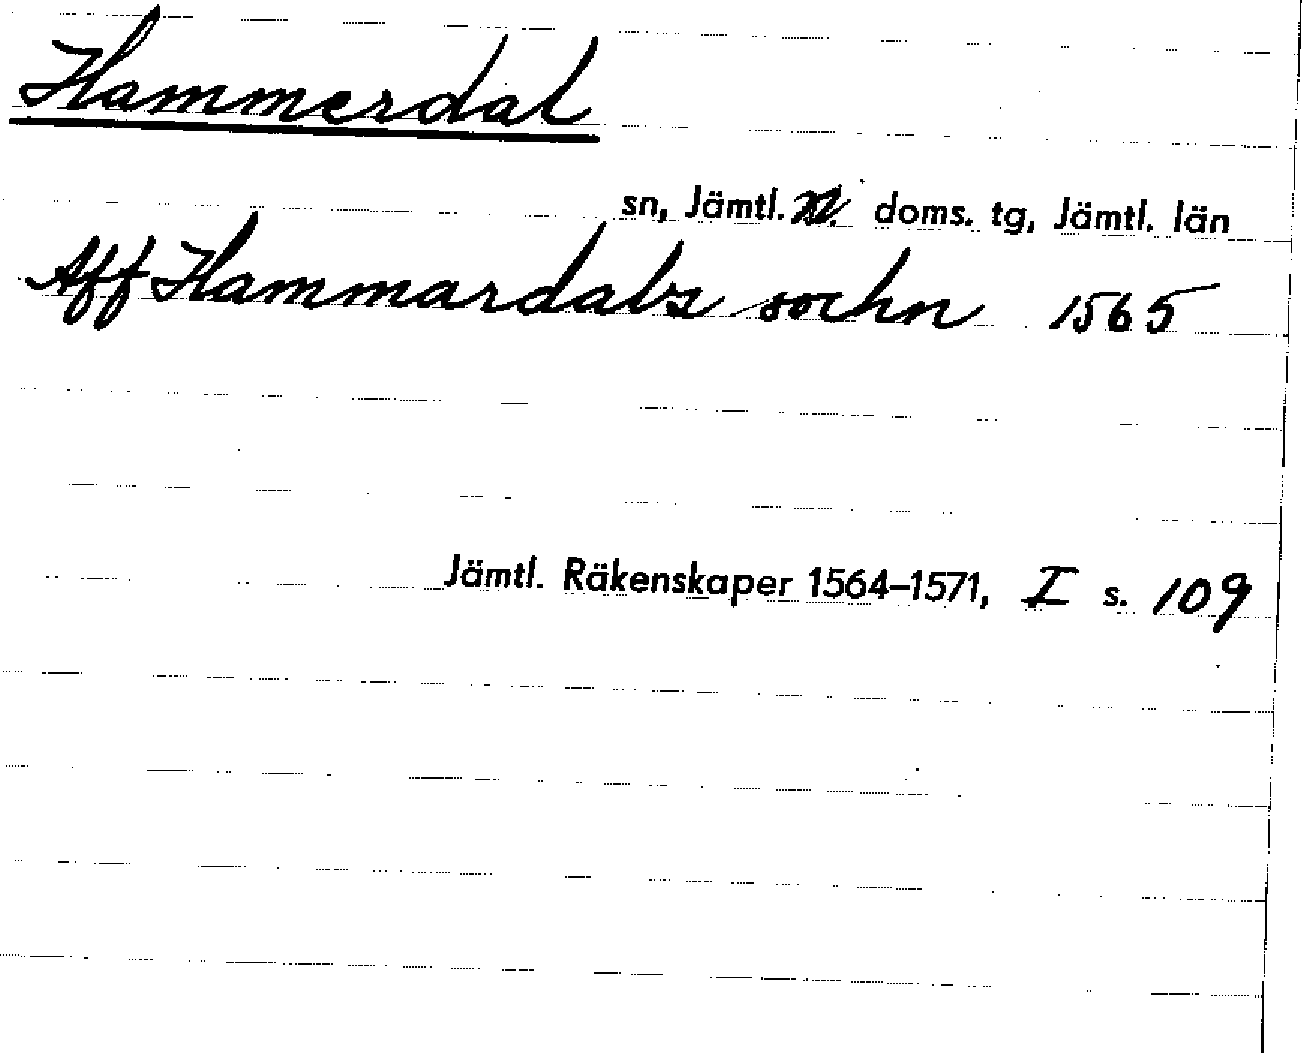 Hammerdal
sn, Jämtl. n. doms. tg, Jämtl. län
Aff Hammardals sochn 1565
Jämtl. Räkenskaper 1564–1571, I s. 109